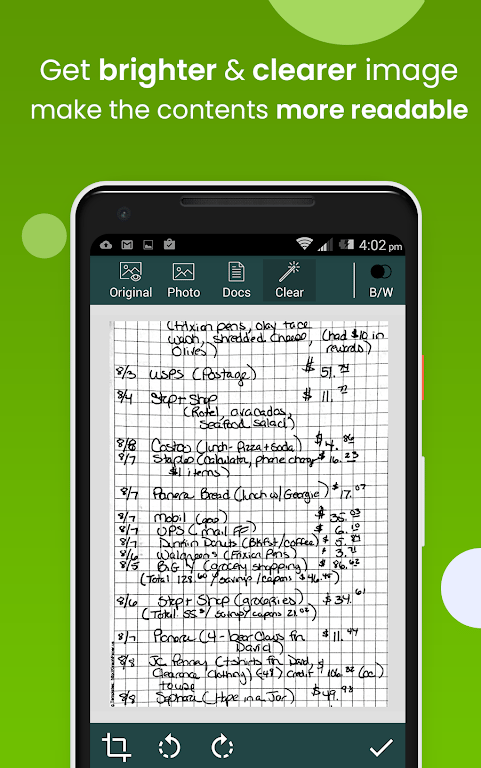 Get brighter & clearer image
make the contents more readable
4:02 pm
Original Photo Docs Clear B/W
(Frixian pens, clay face
wash, shredded cheese, (had $10 in
Olives) rewards)
8/3 USPS (Postage) $ 51.
8/4 Stop + Shop $ 11.
(Rotel, avocados,
seafood salad)
8/8 Costco (lunch - Pizza + Soda) $ 4. 86
8/7 Staples (Calculator, phone charger $ 16. 23
$1 items)
8/7 Panera Bread (lunch w/ Georgie) $ 17. 07
8/7 Mobil (gas) $ 35. 03
8/7 UPS (mail FF) $ 6. 10
8/7 Dunkin Donuts (Bkfst/coffee) $ 5. 87
8/6 Walgreens (Frixian Pens) $ 3. 71
8/5 BIG Y (grocery shopping) $ 86. 62
(Total 128. 60 / savings/coupons $46.
8/6 Stop + Shop (groceries) $ 34. 61
(Total 55. / savings/coupons 21.02)
8/7 Panera (4 - bear Claws for $ 11. 44
David)
8/8 JC Penney (t shirts for David, $
Clearance Clothing) (48) credit 106. 32 (CC)
8/8 Sephora (Hope in a Jar) $ 49. 98